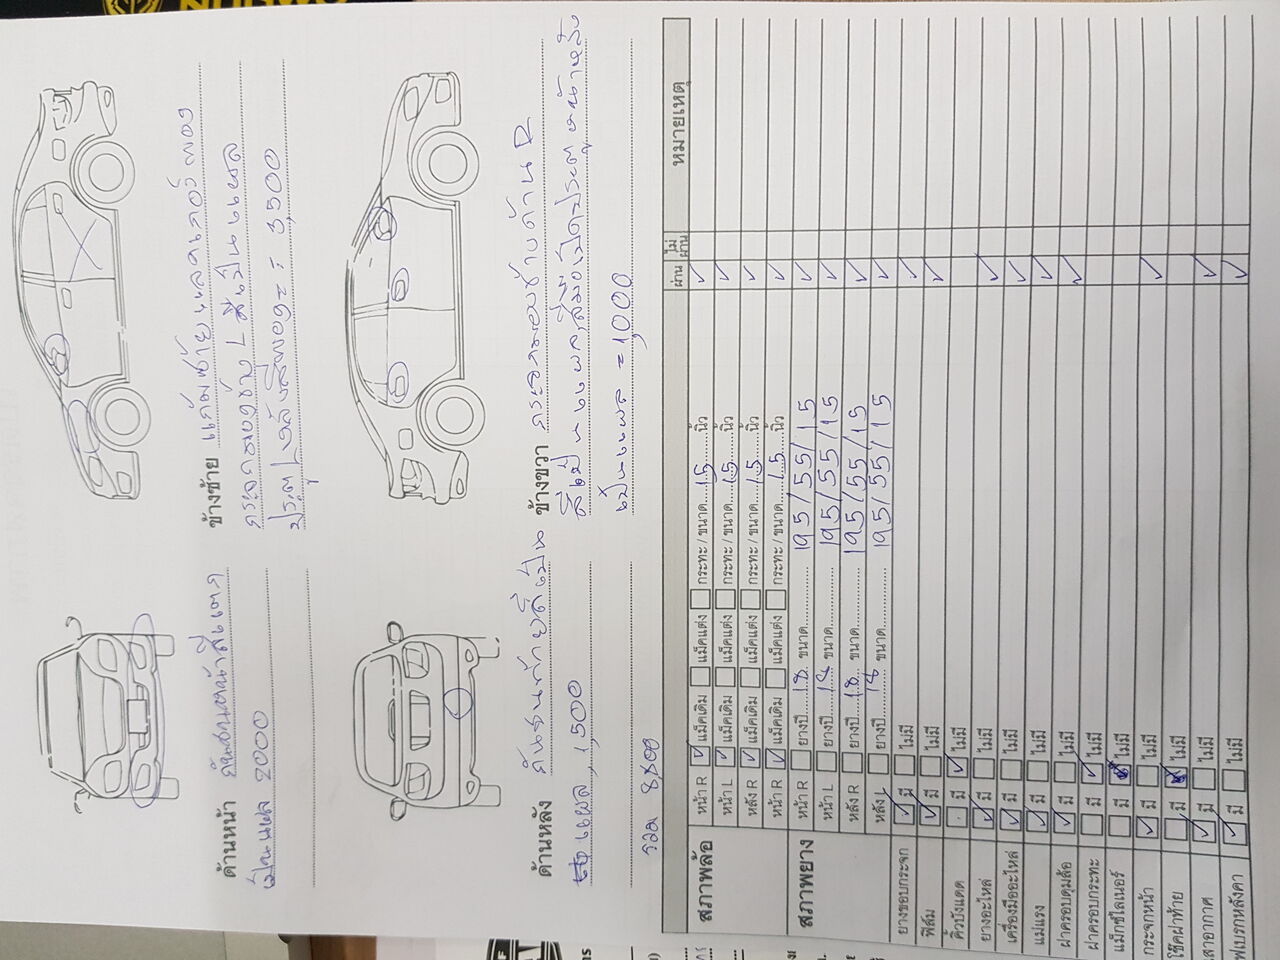 ด้านหน้า กันชนหน้าสีแตก
เป็นแผล 2000
ข้างซ้าย แก้มซ้าย
กระจกมองข้าง L สีเป็นแผล
ประตู L หลังสีพอง = 3,500
ด้านหลัง กันชนท้ายสีเป็น
แผล 1,500
ข้างขวา กระจกมองข้างด้าน R
สีเป็นแผล
เป็นแผล = 1,000
รวม
ผ่าน ไม่ผ่าน หมายเหตุ
สภาพล้อ หน้า R แม็คเดิม แม็คแต่ง กระทะ / ขนาด 15 นิ้ว
หน้า L แม็คเดิม แม็คแต่ง กระทะ / ขนาด 15 นิ้ว
หลัง R แม็คเดิม แม็คแต่ง กระทะ / ขนาด 15 นิ้ว
หน้า R แม็คเดิม แม็คแต่ง กระทะ / ขนาด 15 นิ้ว
สภาพยาง หน้า R ยางปี 18 ขนาด 195/55/15
หน้า L ยางปี 18 ขนาด 195/55/15
หลัง R ยางปี 18 ขนาด 195/55/15
หลัง L ยางปี 18 ขนาด 195/55/15
ยางขอบกระจก มี ไม่มี
ฟิล์ม มี ไม่มี
คิ้วบังแดด มี ไม่มี
ยางอะไหล่ มี ไม่มี
เครื่องมืออะไหล่ มี ไม่มี
แม่แรง มี ไม่มี
ฝาครอบดุมล้อ มี ไม่มี
ฝาครอบกระทะ มี ไม่มี
แม็กซ์ไลเนอร์ มี ไม่มี
กระจกหน้า มี ไม่มี
โช๊คฝาท้าย มี ไม่มี
เสาอากาศ มี ไม่มี
ไฟเบรกหลังคา มี ไม่มี